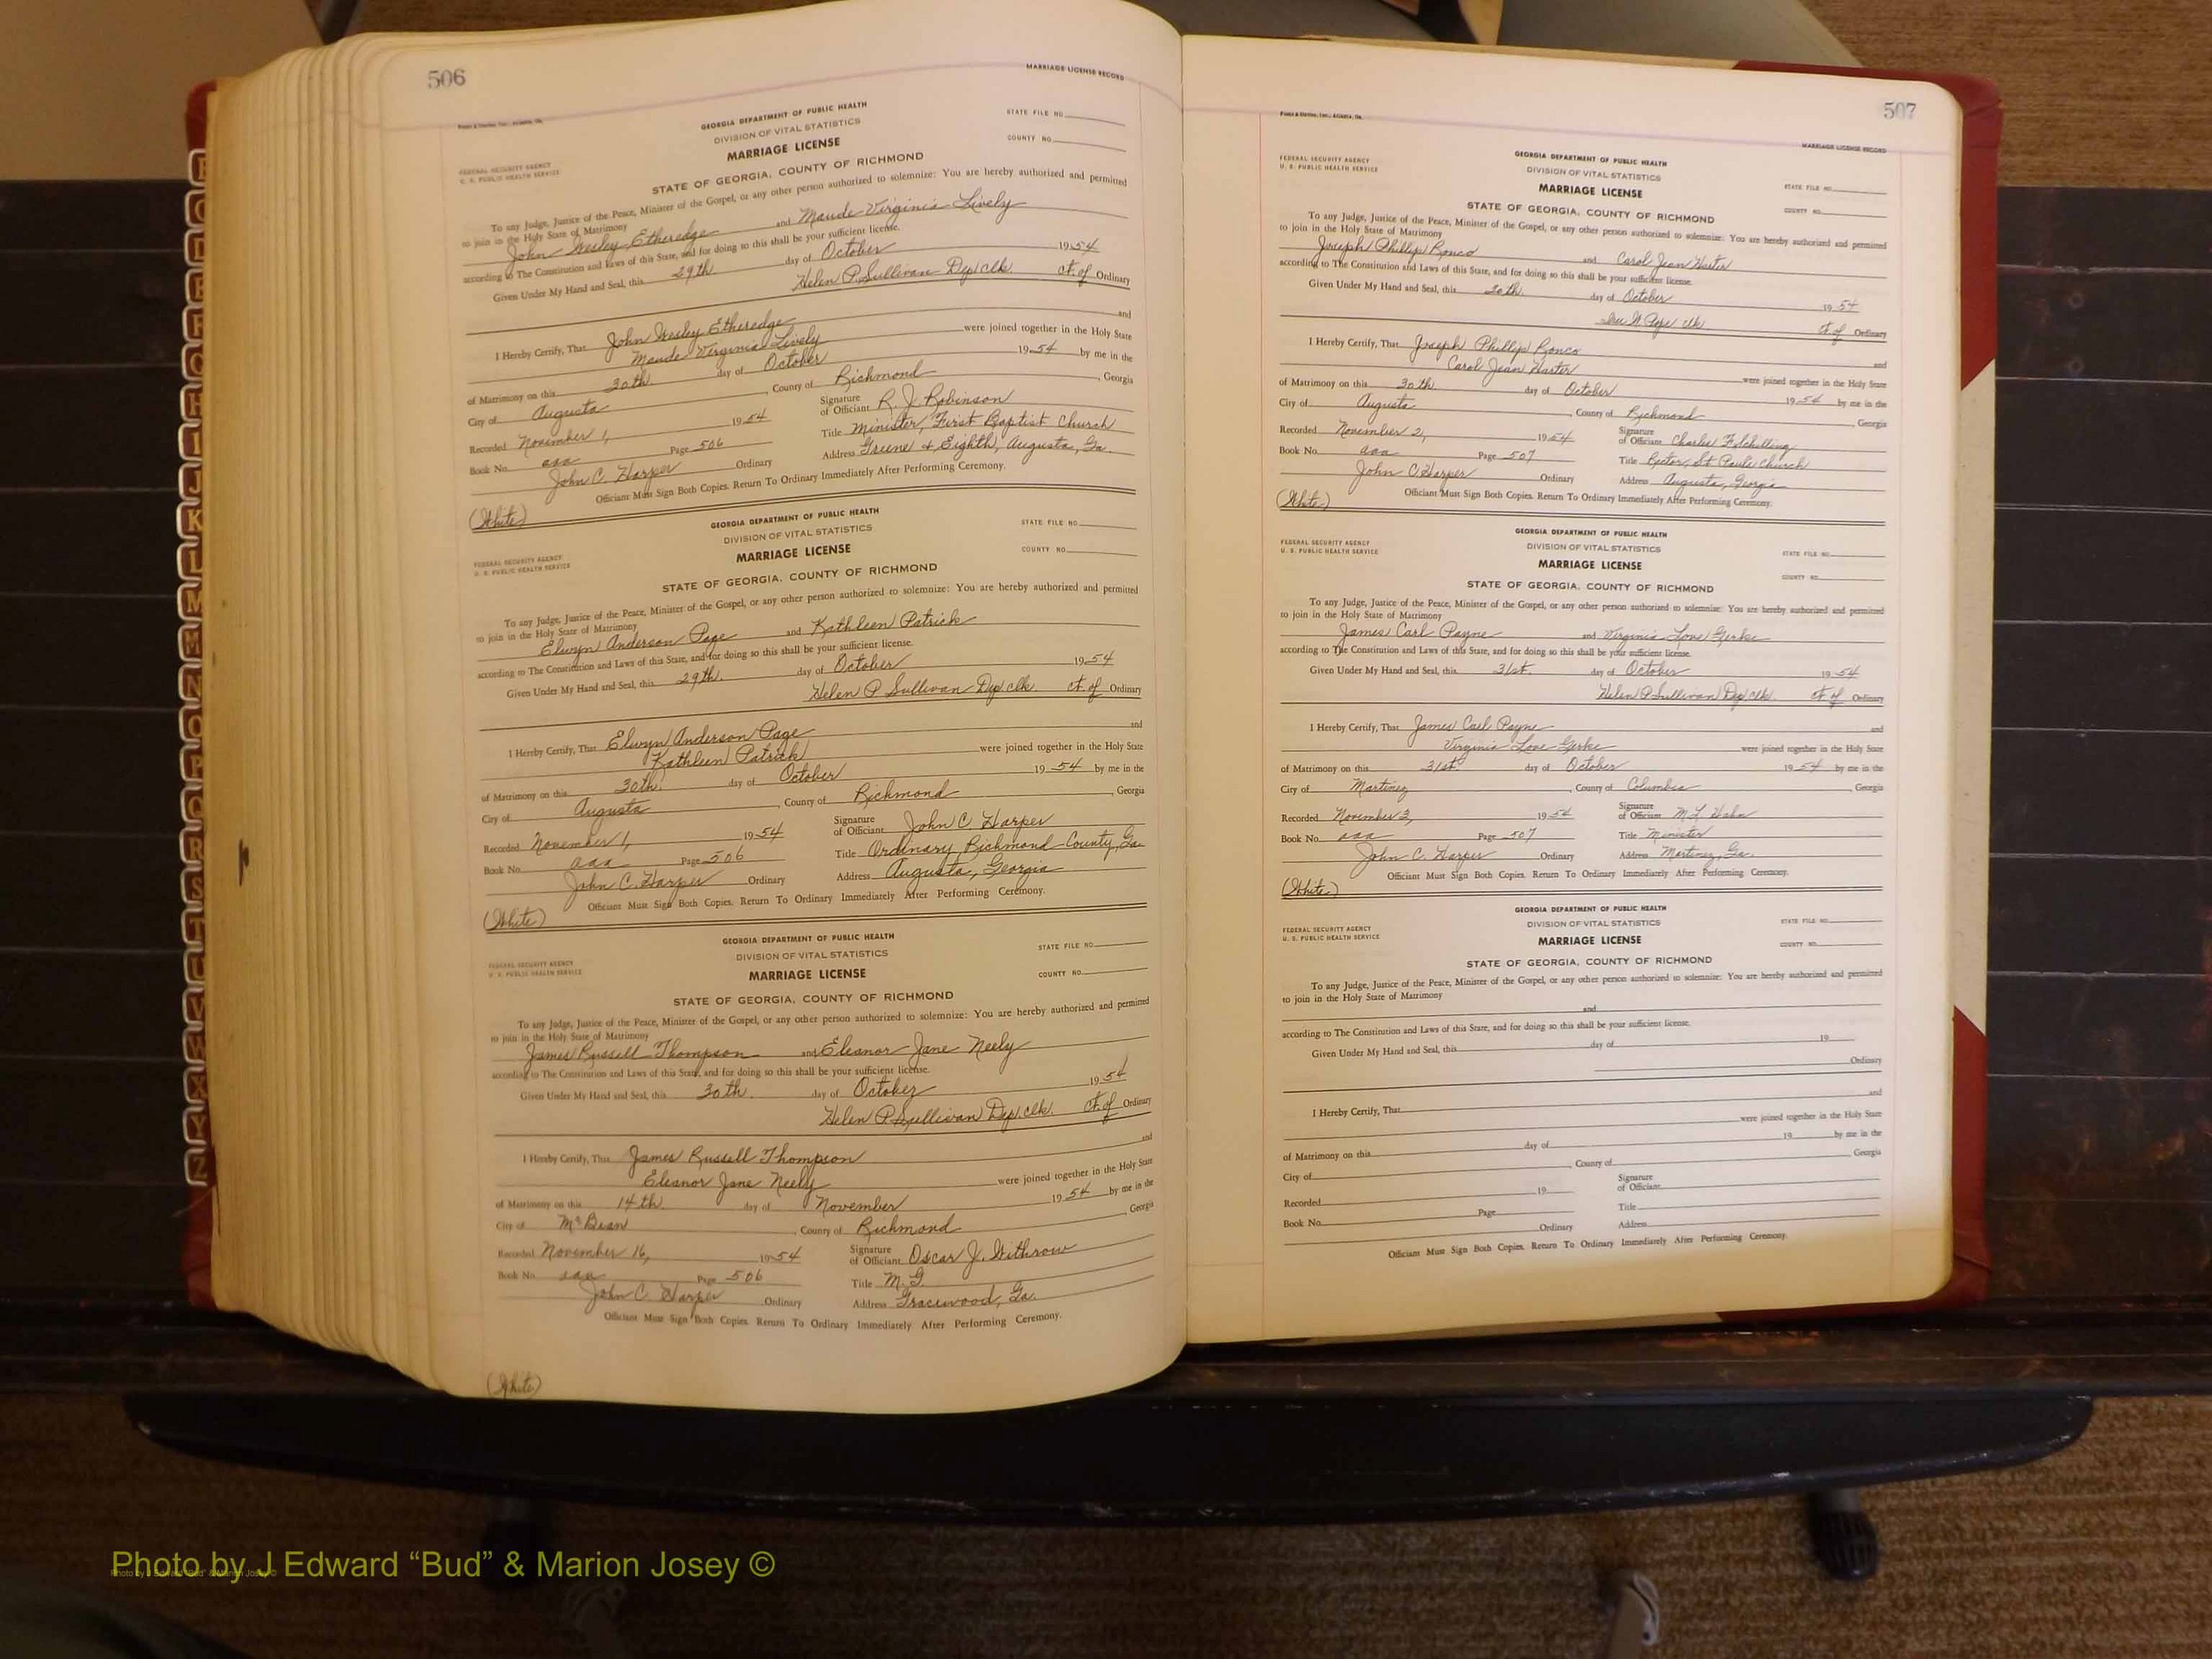 506
MARRIAGE LICENSE RECORD
GEORGIA DEPARTMENT OF PUBLIC HEALTH
DIVISION OF VITAL STATISTICS
MARRIAGE LICENSE
STATE OF GEORGIA, COUNTY OF RICHMOND
STATE FILE NO.
COUNTY NO.
FEDERAL SECURITY AGENCY
U. S. PUBLIC HEALTH SERVICE
To any Judge, Justice of the Peace, Minister of the Gospel, or any other person authorized to solemnize: You are hereby authorized and permitted
to join in the Holy State of Matrimony
John Wesley Etheredge and Maude Virginia Lively
according to The Constitution and Laws of this State, and for doing so this shall be your sufficient license.
Given Under My Hand and Seal, this 29th day of October 1954
Helen P. Sullivan Dep clk. Ct. of Ordinary
I Hereby Certify, That John Wesley Etheredge and
Maude Virginia Lively were joined together in the Holy State
of Matrimony on this 30th day of October 1954 by me in the
City of Augusta, County of Richmond, Georgia
Recorded November 1, 1954 Signature of Officiant R. J. Robinson
Book No. aaa Page 506 Title Minister, First Baptist Church
John C. Harper Ordinary Address Greene & Eighth, Augusta, Ga.
Officiant Must Sign Both Copies. Return To Ordinary Immediately After Performing Ceremony.
(White)
GEORGIA DEPARTMENT OF PUBLIC HEALTH
DIVISION OF VITAL STATISTICS
MARRIAGE LICENSE
STATE OF GEORGIA, COUNTY OF RICHMOND
STATE FILE NO.
COUNTY NO.
FEDERAL SECURITY AGENCY
U. S. PUBLIC HEALTH SERVICE
To any Judge, Justice of the Peace, Minister of the Gospel, or any other person authorized to solemnize: You are hereby authorized and permitted
to join in the Holy State of Matrimony
Elwyn Anderson Page and Kathleen Patrick
according to The Constitution and Laws of this State, and for doing so this shall be your sufficient license.
Given Under My Hand and Seal, this 29th. day of October 1954
Helen P Sullivan Dep. clk. Ct. of Ordinary
I Hereby Certify, That Elwyn Anderson Page and
Kathleen Patrick were joined together in the Holy State
of Matrimony on this 30th. day of October 1954 by me in the
City of Augusta, County of Richmond, Georgia
Recorded November 1, 1954 Signature of Officiant John C Harper
Book No. aaa Page 506 Title Ordinary, Richmond County, Ga.
John C. Harper Ordinary Address Augusta, Georgia
Officiant Must Sign Both Copies. Return To Ordinary Immediately After Performing Ceremony.
(White)
GEORGIA DEPARTMENT OF PUBLIC HEALTH
DIVISION OF VITAL STATISTICS
MARRIAGE LICENSE
STATE OF GEORGIA, COUNTY OF RICHMOND
STATE FILE NO.
COUNTY NO.
FEDERAL SECURITY AGENCY
U. S. PUBLIC HEALTH SERVICE
To any Judge, Justice of the Peace, Minister of the Gospel, or any other person authorized to solemnize: You are hereby authorized and permitted
to join in the Holy State of Matrimony
James Russell Thompson and Eleanor Jane Neely
according to The Constitution and Laws of this State, and for doing so this shall be your sufficient license.
Given Under My Hand and Seal, this 30th. day of October 1954
Helen P Sullivan Dep. clk. Ct. of Ordinary
I Hereby Certify, That James Russell Thompson and
Eleanor Jane Neely were joined together in the Holy State
of Matrimony on this 14th. day of November 1954 by me in the
City of McBean, County of Richmond, Georgia
Recorded November 16, 1954 Signature of Officiant Oscar J. Withrow
Book No. aaa Page 506 Title M. G.
John C. Harper Ordinary Address Gracewood, Ga.
Officiant Must Sign Both Copies. Return To Ordinary Immediately After Performing Ceremony.
(White)
507
MARRIAGE LICENSE RECORD
GEORGIA DEPARTMENT OF PUBLIC HEALTH
DIVISION OF VITAL STATISTICS
MARRIAGE LICENSE
STATE OF GEORGIA, COUNTY OF RICHMOND
STATE FILE NO.
COUNTY NO.
FEDERAL SECURITY AGENCY
U. S. PUBLIC HEALTH SERVICE
To any Judge, Justice of the Peace, Minister of the Gospel, or any other person authorized to solemnize: You are hereby authorized and permitted
to join in the Holy State of Matrimony
Joseph Phillip Ronco and Carol Jean Harter
according to The Constitution and Laws of this State, and for doing so this shall be your sufficient license.
Given Under My Hand and Seal, this 30th. day of October 1954
Pope clk. Ct. of Ordinary
I Hereby Certify, That Joseph Phillip Ronco and
Carol Jean Harter were joined together in the Holy State
of Matrimony on this 30th day of October 1954 by me in the
City of Augusta, County of Richmond, Georgia
Recorded November 2, 1954 Signature of Officiant Charles F. Schilling
Book No. aaa Page 507 Title Rector, St Pauls Church
John C Harper Ordinary Address Augusta, Georgia
Officiant Must Sign Both Copies. Return To Ordinary Immediately After Performing Ceremony.
(White)
GEORGIA DEPARTMENT OF PUBLIC HEALTH
DIVISION OF VITAL STATISTICS
MARRIAGE LICENSE
STATE OF GEORGIA, COUNTY OF RICHMOND
STATE FILE NO.
COUNTY NO.
FEDERAL SECURITY AGENCY
U. S. PUBLIC HEALTH SERVICE
To any Judge, Justice of the Peace, Minister of the Gospel, or any other person authorized to solemnize: You are hereby authorized and permitted
to join in the Holy State of Matrimony
James Carl Payne and Virginia Love Gerke
according to The Constitution and Laws of this State, and for doing so this shall be your sufficient license.
Given Under My Hand and Seal, this 31st. day of October 1954
Helen P Sullivan Dep clk. Ct. of Ordinary
I Hereby Certify, That James Carl Payne and
Virginia Love Gerke were joined together in the Holy State
of Matrimony on this 31st day of October 1954 by me in the
City of Martinez, County of Columbia, Georgia
Recorded November 3, 1954 Signature of Officiant M. L. Hahn
Book No. aaa Page 507 Title Minister
John C. Harper Ordinary Address Martinez, Ga.
Officiant Must Sign Both Copies. Return To Ordinary Immediately After Performing Ceremony.
(White)
GEORGIA DEPARTMENT OF PUBLIC HEALTH
DIVISION OF VITAL STATISTICS
MARRIAGE LICENSE
STATE OF GEORGIA, COUNTY OF RICHMOND
STATE FILE NO.
COUNTY NO.
FEDERAL SECURITY AGENCY
U. S. PUBLIC HEALTH SERVICE
To any Judge, Justice of the Peace, Minister of the Gospel, or any other person authorized to solemnize: You are hereby authorized and permitted
to join in the Holy State of Matrimony
and
according to The Constitution and Laws of this State, and for doing so this shall be your sufficient license.
Given Under My Hand and Seal, this day of 19
Ordinary
I Hereby Certify, That and
were joined together in the Holy State
of Matrimony on this day of 19 by me in the
City of , County of , Georgia
Recorded 19 Signature of Officiant
Book No. Page Title
Ordinary Address
Officiant Must Sign Both Copies. Return To Ordinary Immediately After Performing Ceremony.
Photo by J Edward “Bud” & Marion Josey ©
Photo by J Edward "Bud" & Marion Josey ©